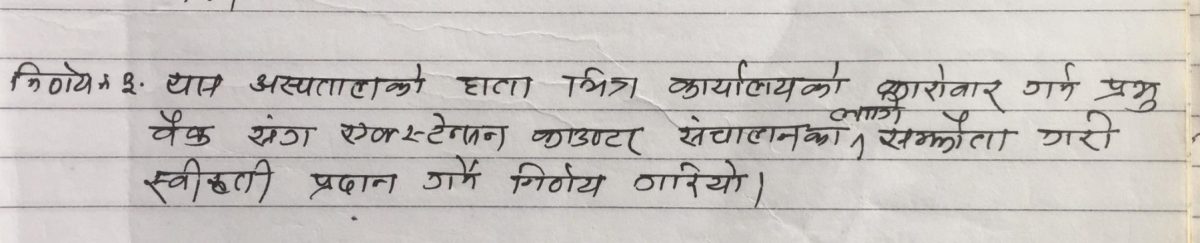 निर्णय नं ३. यस अस्पतालको हाता भित्र कार्यालयको कारोवार गर्न प्रभु
बैंक संग एक्स्टेन्सन काउण्टर संचालनका लागि सम्झौता गरी
स्वीकृती प्रदान गर्ने निर्णय गारियो।